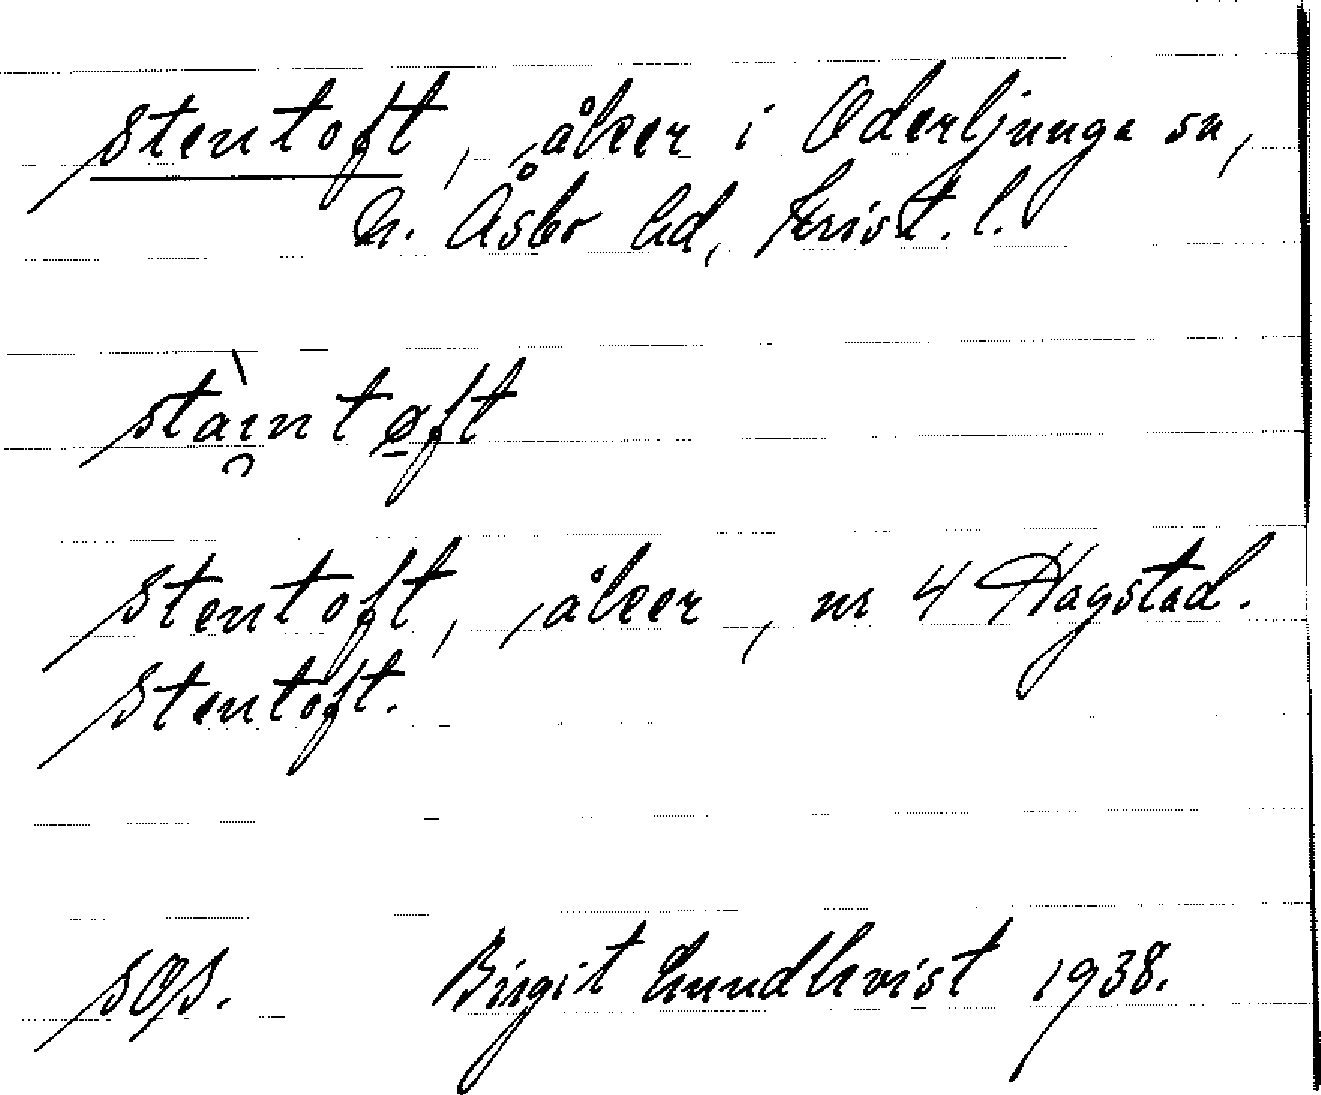 Stentoft, åker i Oderljunga sn,
N. Åsbo hd, Krist. l.
stàɪ̯ntø̠ft
Stentoft, åker, nr 4 Hagstad.
Stentoft.
SOS. Birgit Lundkvist 1938.